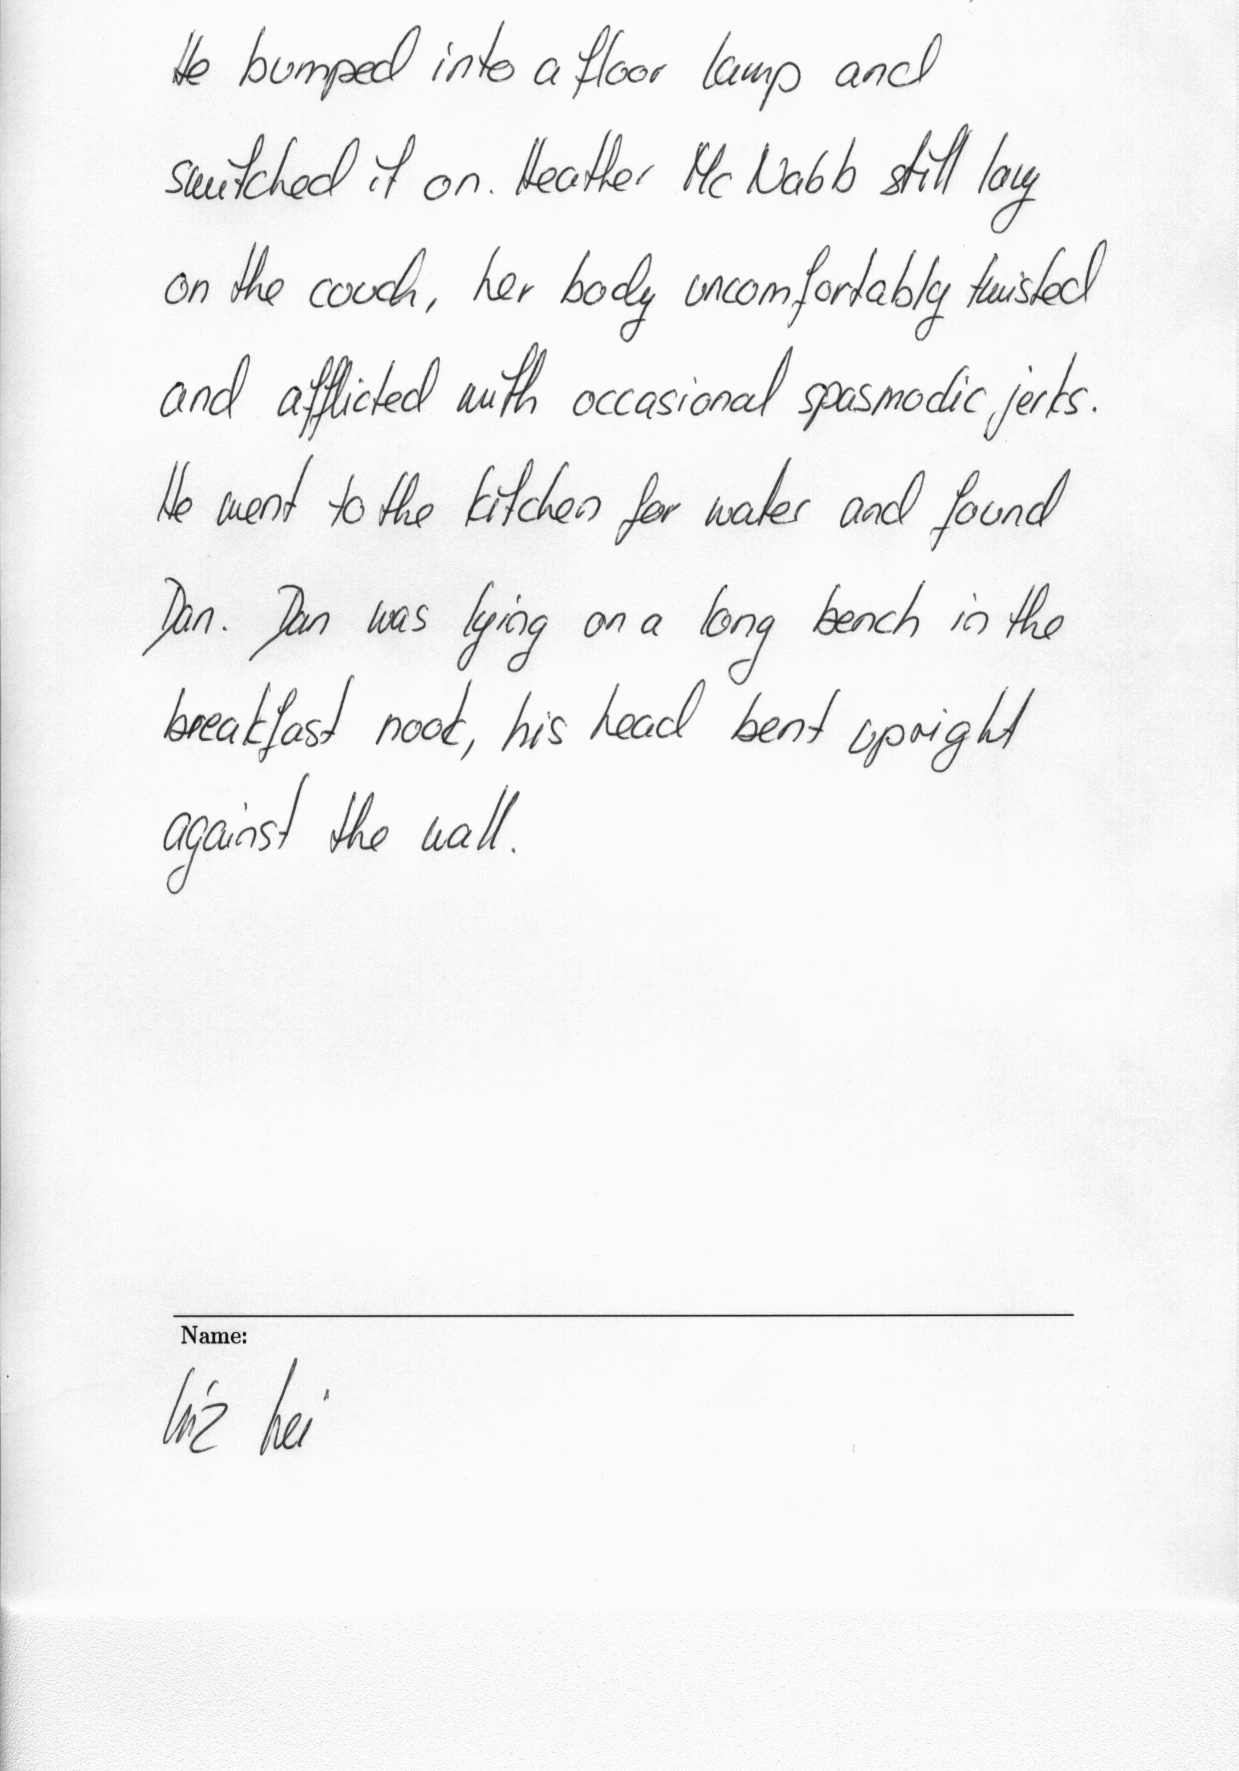 He bumped into a floor lamp and
switched it on. Heather McNabb still lay
on the couch, her body uncomfortably twisted
and afflicted with occasional spasmodic jerks.
He went to the kitchen for water and found
Dan. Dan was lying on a long bench in the
breakfast nook, his head bent upright
against the wall.
Name: